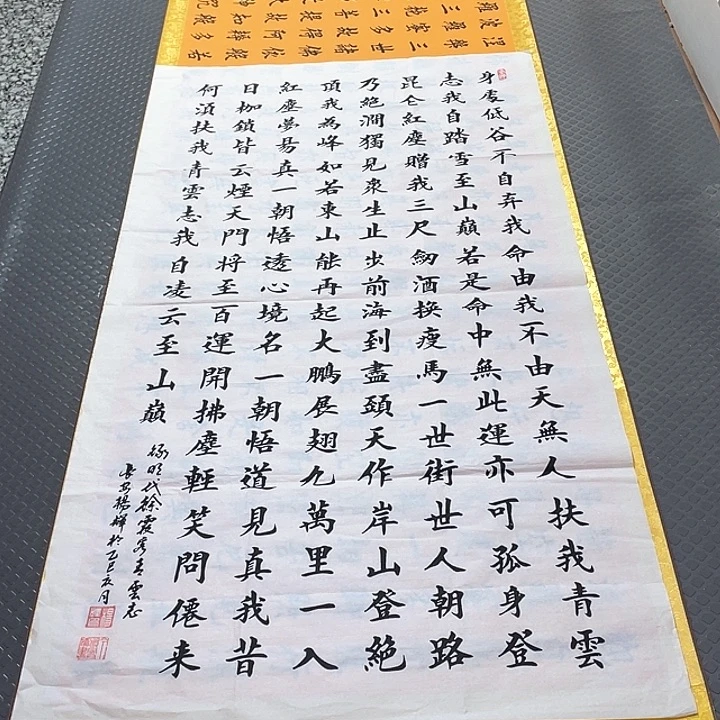 身處低谷不自弃我命由我不由天無人扶我青雲
志我自踏雪至山巔若是命中無此運亦可孤身登
昆仑紅塵贈我三尺劒酒换瘦馬一世街世人朝路
乃絶澗獨見衆生止步前海到盡頭天作岸山登絶
頂我為峰如若東山能再起大鵬展翅九萬里一入
紅塵夢易真一朝悟透心境名一朝悟道見真我昔
日枷鎖皆云煙天門将至百運開拂塵輕笑問僊来
何須扶我青雲志我自凌云至山巔
録明代徐霞客青雲志
長安楊輝於乙巳夏月